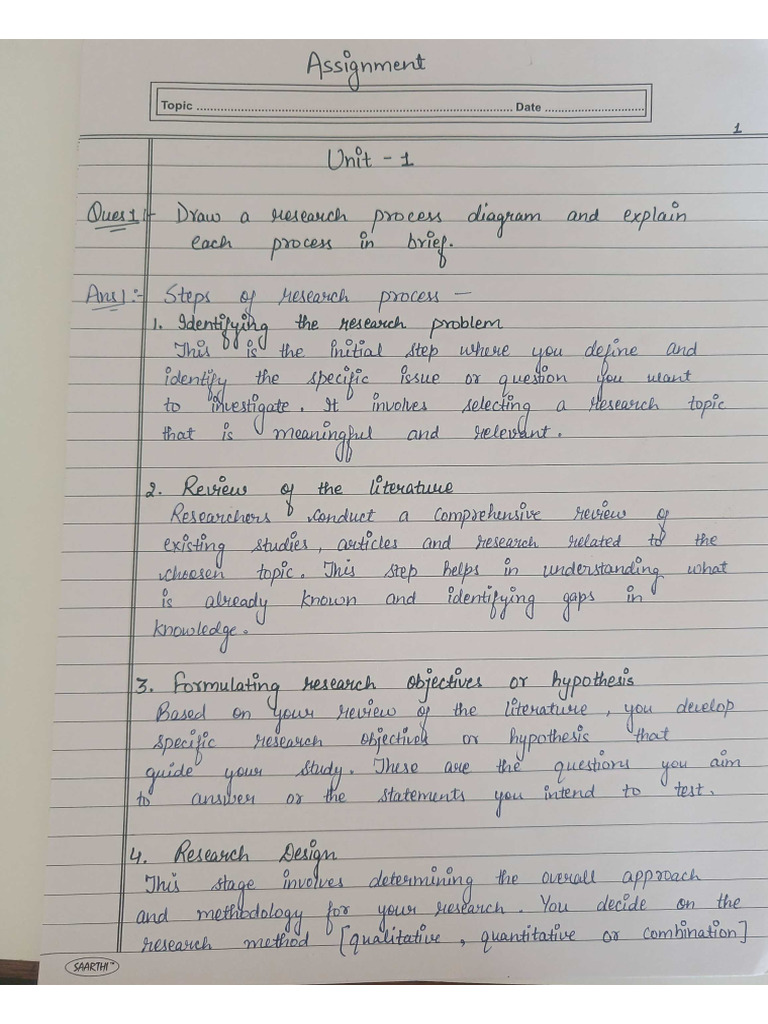 Assignment
Topic ........................................................................................ Date ..............................
1
Unit - 1
Ques 1:- Draw a research process diagram and explain
each process in brief.
Ans 1:- Steps of research process —
1. Identifying the research problem
This is the initial step where you define and
identify the specific issue or question you want
to investigate. It involves selecting a research topic
that is meaningful and relevant.
2. Review of the literature
Researchers conduct a comprehensive review of
existing studies, articles and research related to the
choosen topic. This step helps in understanding what
is already known and identifying gaps in
knowledge.
3. Formulating research objectives or hypothesis
Based on your review of the literature, you develop
specific research objectives or hypothesis that
guide your study. These are the questions you aim
to answer or the statements you intend to test.
4. Research Design
This stage involves determining the overall approach
and methodology for your research. You decide on the
research method [qualitative, quantitative or combination]
SAARTHI™